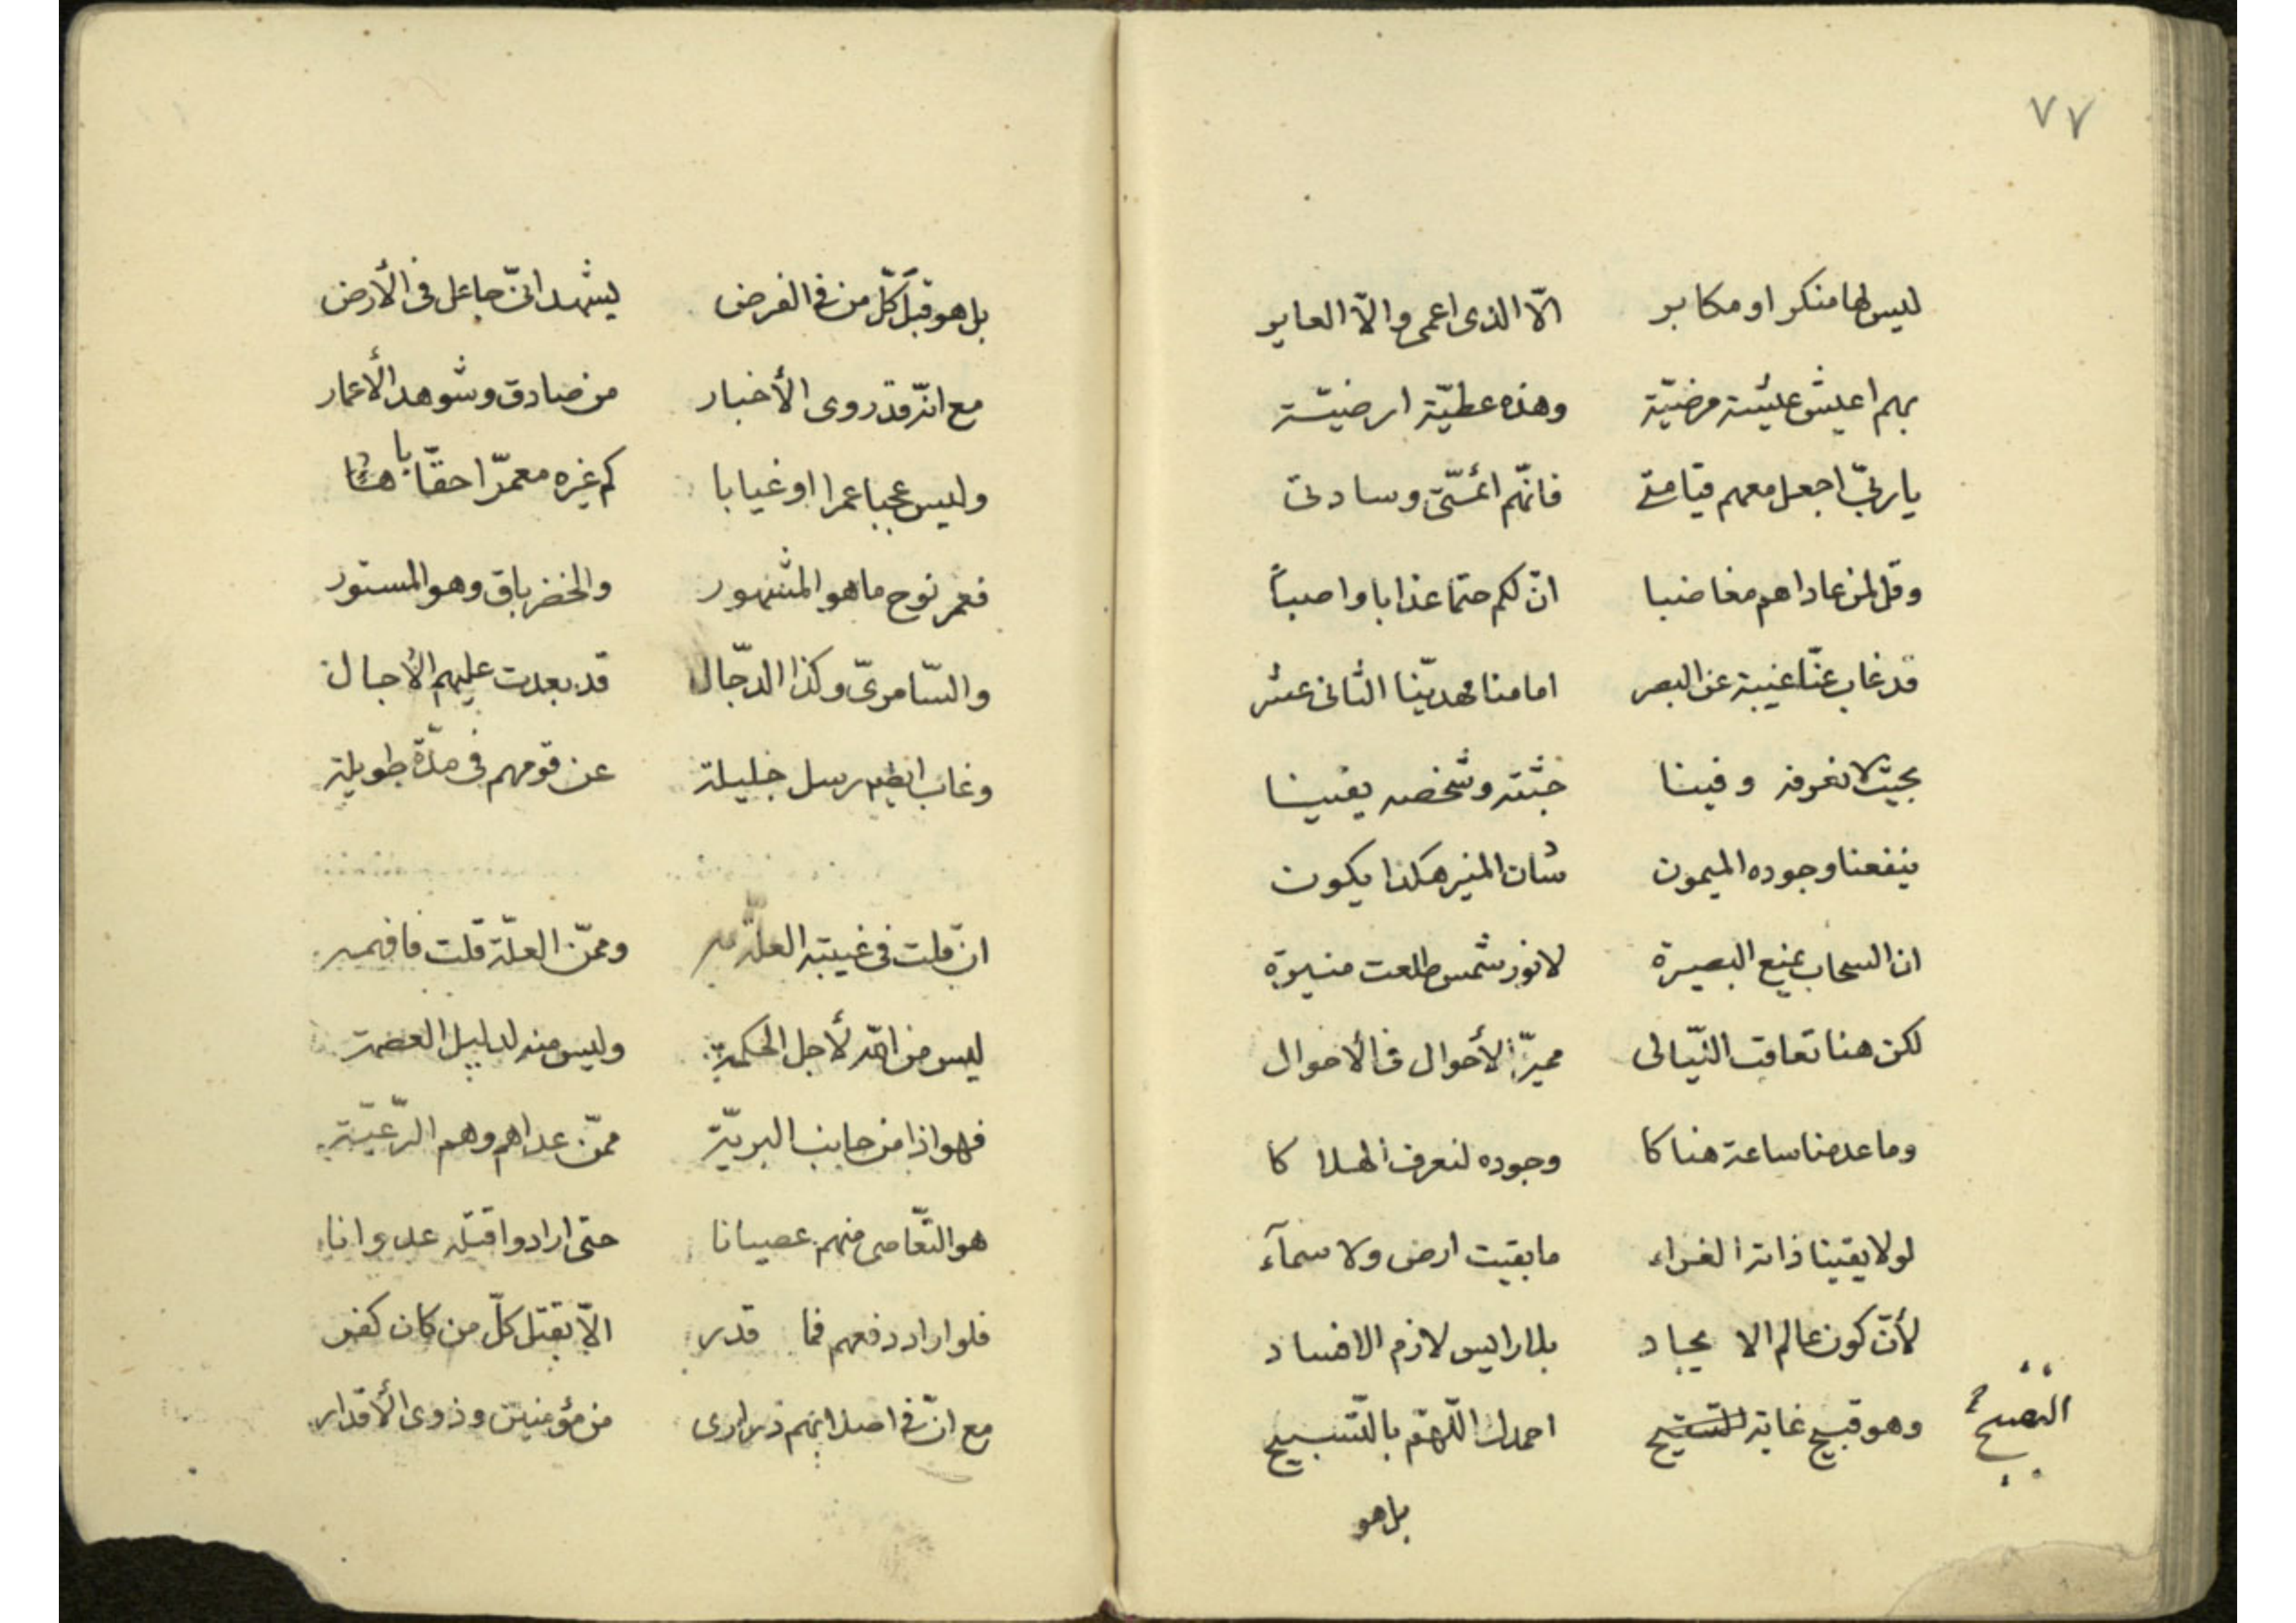 ٧٧
ليس لها منكر او مكابر الّا الذى اعمى والّا العاير
بهم اعيش عيشة مرضيّة وهذه عطيّة ارضيّة
يا ربّ اجعل معهم قيامتى فانّهم ائمّتى وسادتى
وقل لمن عاداهم مغاضبا انّ لكم حتما عذابا واصباً
قد غاب عنّا غيبة عن البصر امامنا مهديّنا الثانى عشر
بحيث لا نعرفه وفينا جثّته وشخصه يقينا
ينفعنا وجوده الميمون شان المنير هكذا يكون
ان السحاب يمنع البصيرة لا نور شمس طلعت منيرة
لكن هنا تعاقب اللّيالى مميّز الأحوال فى الأحوال
وما عدمنا ساعة هناكا وجوده لنعرف الهلاكا
لولا يقينا ذاته الغراء ما بقيت ارض ولا سمآء
لأنّ كون عالم الايجاد بلا رايس لازم الافساد
وهو قبيح غاية التقبيح احمدك اللّهمّ بالتّسبيح
بل هو
بل هو قبل كلّ من فى الفرض يشهد انّى جاعل فى الأرض
مع انّه قد روى الأخبار من صادق وشوهد الأعمار
وليس عجبا عمرا او غيابا كم غيره معمّرا احقّابا
فعمر نوح ما هو المشهور والخضر باق وهو المستور
والسّامرىّ وكذا الدجّال قد بعدت عليهم الأجال
وغاب ايضا رسل جليلة عن قومهم فى مدّة طويلة
ان قلت فى غيبته العلّة وممّن العلّة قلت فافهمه
ليس من اللّه لأجل الحكمة وليس منه لدليل العصمة
فهو اذا من جانب البريّة ممّن عداهم وهم الرّعيّة
هو التّعاصى منهم عصيانا حتى ارادوا قتله عدوانا
فلو اراد دفعهم فما قدر الّا بقتل كلّ من كان كفر
مع انّ فى اصلابهم ذرارى من مؤمنين وذوى الأقدار